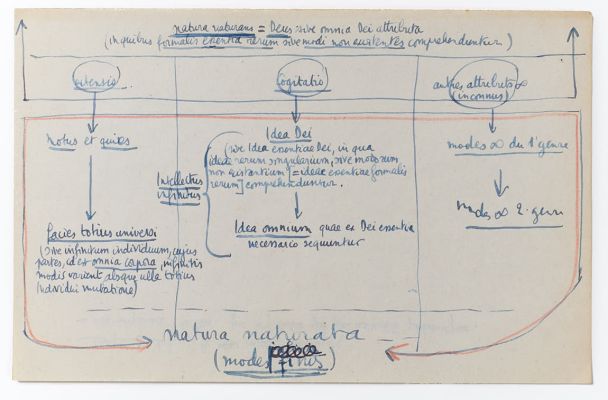 natura naturans = Deus sive omnia Dei attributa
(in quibus formalis essentia rerum sive modi non existentes comprehenduntur)
extensio
Cogitatio
autres attributs ∞
(inconnus)
Motus et quies
Idea Dei
(sive Idea essentiae Dei, in qua
ideae rerum singularium, sive modorum
non existentium [= ideae essentiae formalis
rerum] comprehenduntur.
Intellectus
infinitus
modes ∞ du 1er genre
Idea omnium quae ex Dei essentia
necessario sequuntur
modes ∞ 2e genre
facies totius universi
(sive infinitum individuum, cujus
partes, id est omnia corpora, infinitis
modis varient absque ulla totius
individui mutatione)
natura naturata
(modes finis)